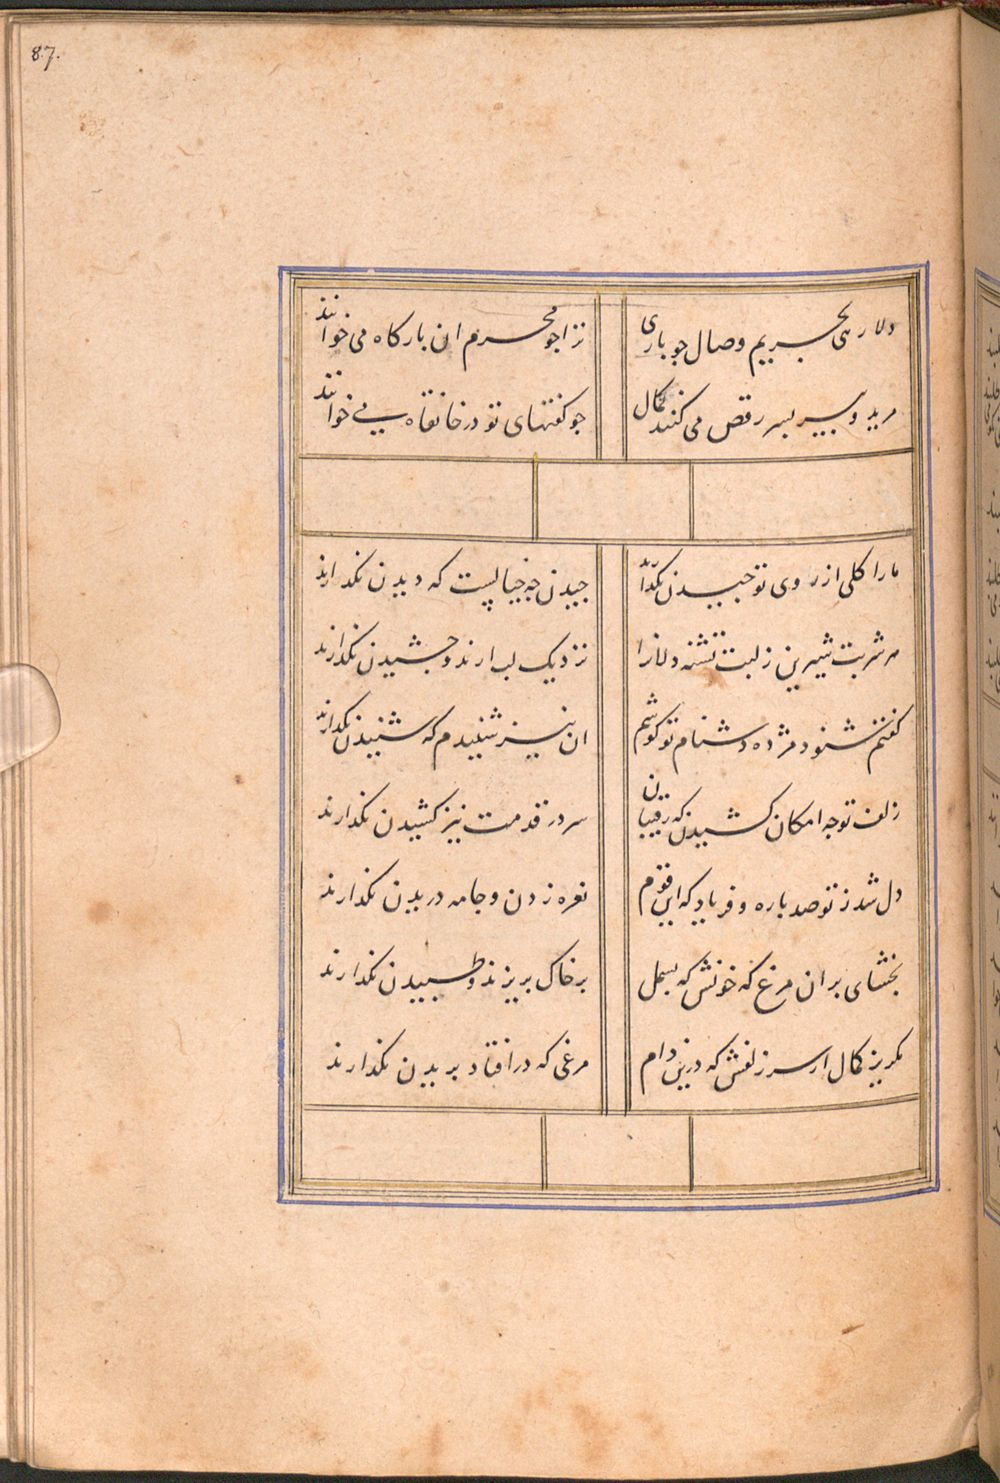 87.
دلا رهی بحریم وصال جو باری
ترا جو محرم ان بارکاه می خوانند
مرید و پیر بسر رقص می کنند کمال
جو کفتهای تو در خانقاه می خوانند
مارا کلی از روی تو جیدن نکذارند
جیدن جه خیالیست که دیدن نکذارند
صد شربت شیرین ز لبت تشنه دلانرا
نزدیک لب ارند و جشیدن نکذارند
کفتم شنود مژده دشنام تو کوشم
ان نیز شنیدم که شنیدن نکذارند
زلف تو جه امکان کشیدن که رقیبان
سر در قدمت نیز کشیدن نکذارند
دل شد ز تو صد باره و فریاد که این قوم
نعره زدن و جامه دریدن نکذارند
بخشای بر ان مرغ که خونش که بسمل
بر خاک بریزند و طبیدن نکذارند
مکریز کمال از سر زلفش که درین دام
مرغی که در افتاد بریدن نکذارند